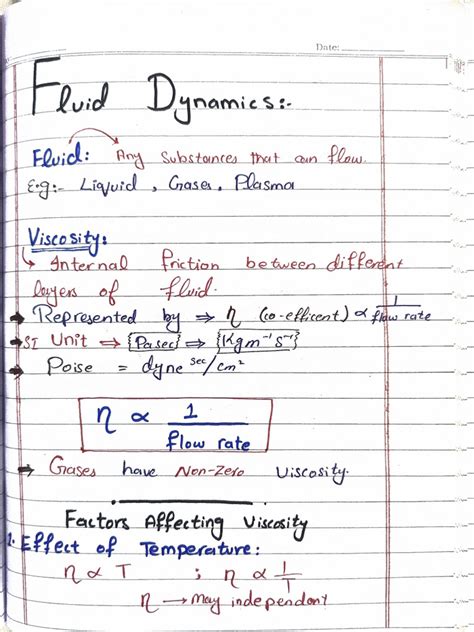 Date:
Fluid Dynamics:-
Fluid: Any Substances that can flow.
E.g:- Liqvuid, Gases, Plasma
Viscosity:
↳ Internal friction between different
layers of fluid.
→ Represented by ⇒ η (co-efficent) ∝ 1/flow rate
→ SI Unit ⇒ {Pasec} ⇒ {Kgm⁻¹s⁻¹}
→ Poise = dyne sec/cm²
η ∝ 1/flow rate
→ Gases have Non-Zero Viscosity.
Factors Affecting Viscosity
1. Effect of Temperature:
η ∝ T ; η ∝ 1/T
η → may independent